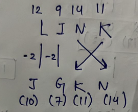 12 9 14 11
L J N K
-2 -2
J G K N
(10) (7) (11) (14)